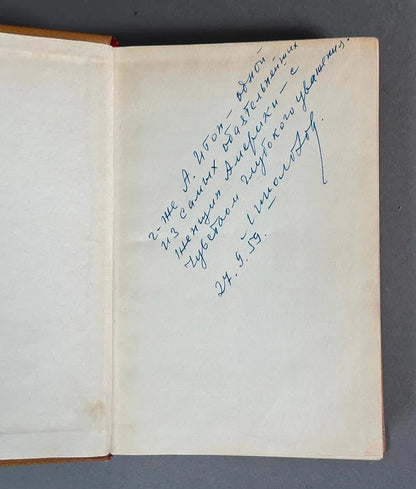 г-же А. Итон – одной
из самых обаятельнейших
женщин Америки – с
чувством глубокого уважения.
М. Шолохов.
27.9.59.